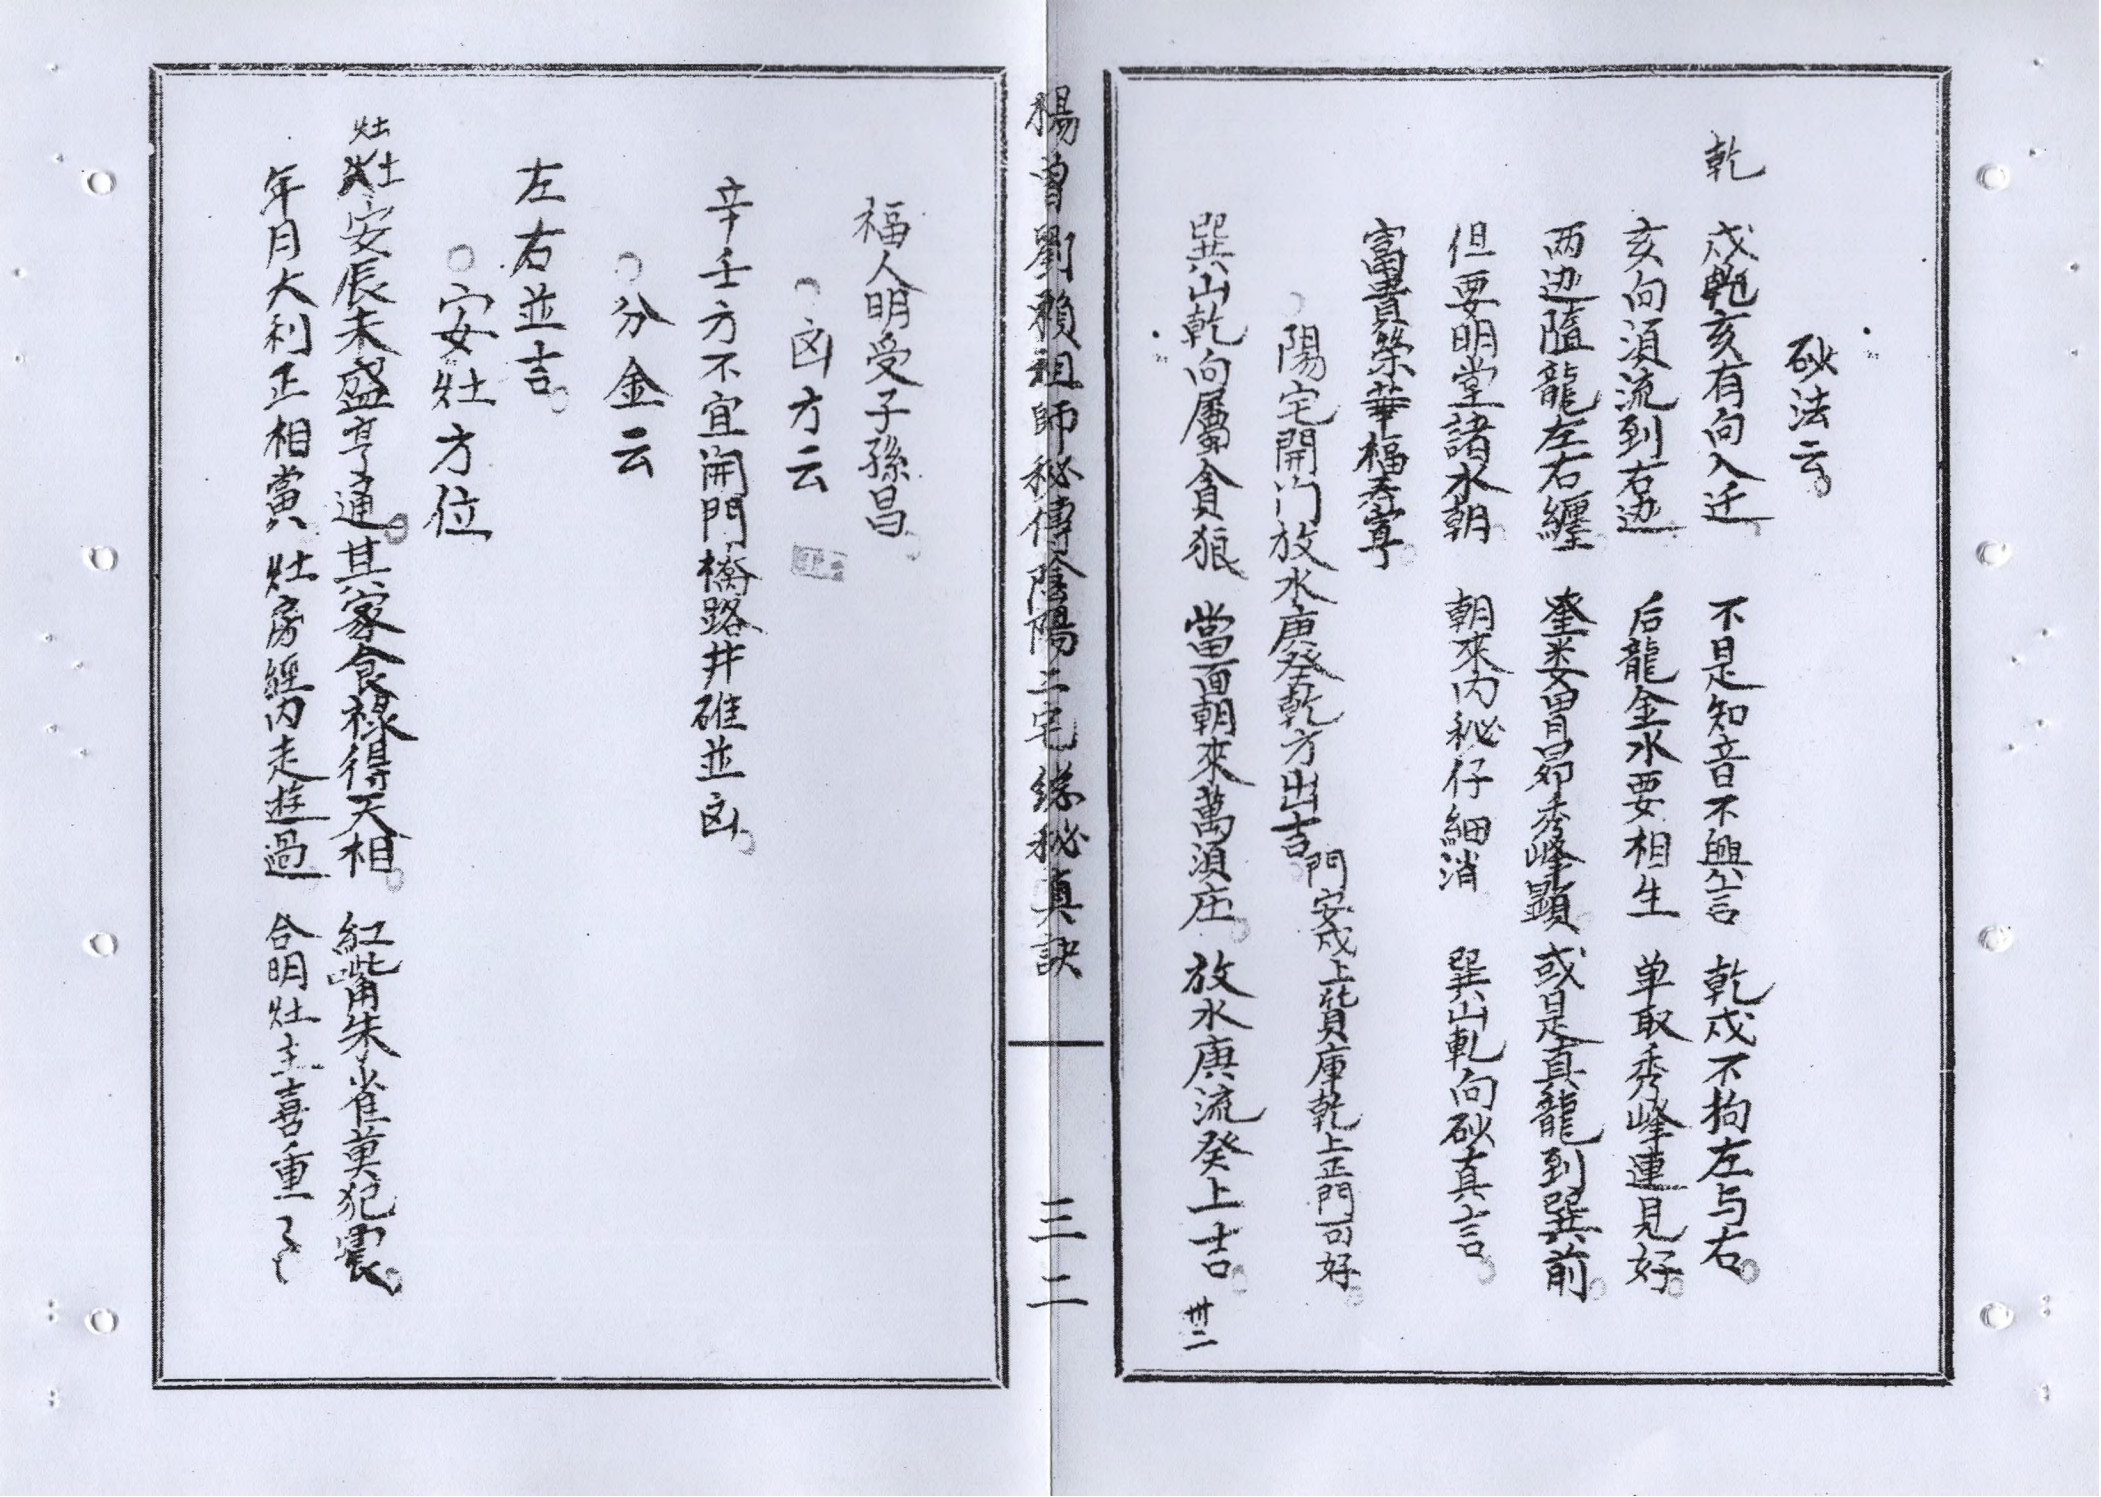 砂法云
乾
戍乾亥有向入迁 不是知音不與言 乾戍不拘左与右
亥向須流到右边 后龍金水要相生 单取秀峰連見好
两边隨龍左右纏 奎娄胃昴秀峰顕 或是真龍到巽前
但要明堂諸水朝 朝來内秘仔細消 巽山乹向砂真言
富貴榮華福寿寧
陽宅開门放水庚癸乾方出吉
門安戍上貨庫乾上正門可好
巽山乾向屬貪狼 當面朝來萬須庄 放水庚流癸上吉
卅二
楊曾劉賴祖師秘傳陰陽二宅綜秘真訣
三二
福人明受子孫昌
凶方云
辛壬方不宜開門橋路井碓並凶
分金云
左右並吉
安灶方位
灶
安辰未盛亨通 其家食禄得天相 紅嘴朱雀莫犯震
年月大利正相當 灶房經内走遊過 合明灶主喜重了